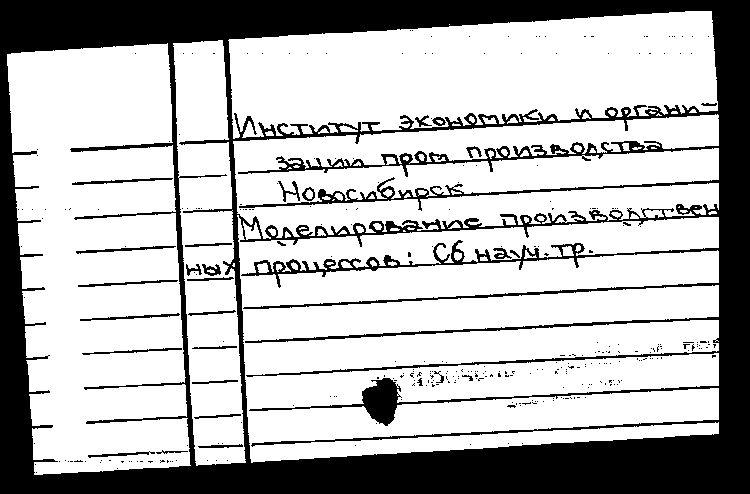 Институт экономики и органи-
зации пром. производства
Новосибирск.
Моделирование производствен
ных процессов: Сб.науч.тр.